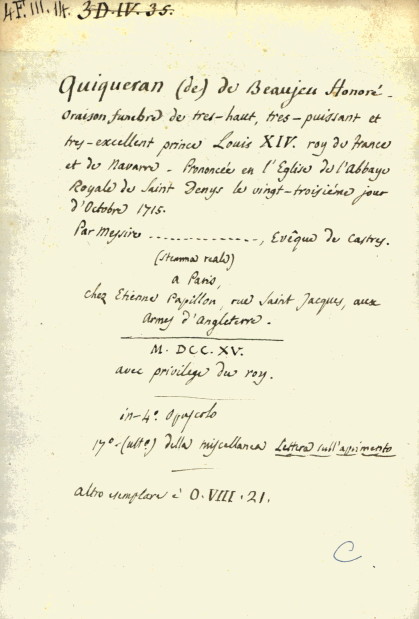 4F. III. 14. 3D. IV. 35.
Quiqueran (de) de Beaujeu Honoré-
Oraison funebre de tres-haut, tres-puissant et
tres-excellent prince Louis XIV. roy de France
et de Navarre - Prononcée en l'Eglise de l'Abbaye
Royale de Saint Denys le vingt-troisiéme jour
d'Octobre 1715.
Par Messire ................, Evêque de Castres.
(Stemma reale)
a Paris,
chez Etienne Papillon, rue Saint Jacques, aux
Armes d'Angleterre.
M. DCC. XV.
avec privilege du roy.
in-4º. Opuscolo
17º-(ultº.) della miscellanea Lettera sull'
altro esemplare è O. VIII. 21.
C